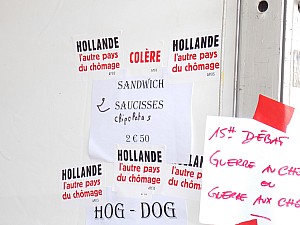 HOLLANDE
l'autre pays
du chômage
COLÈRE
HOLLANDE
l'autre pays
du chômage
SANDWICH
2 SAUCISSES
chipolatas
2 € 50
HOLLANDE
l'autre pays
du chômage
HOLLANDE
l'autre pays
du chômage
HOLLANDE
l'autre pays
du chômage
HOG - DOG
15H DÉBAT
GUERRE AU CHÔ
OU
GUERRE AUX CHÔ